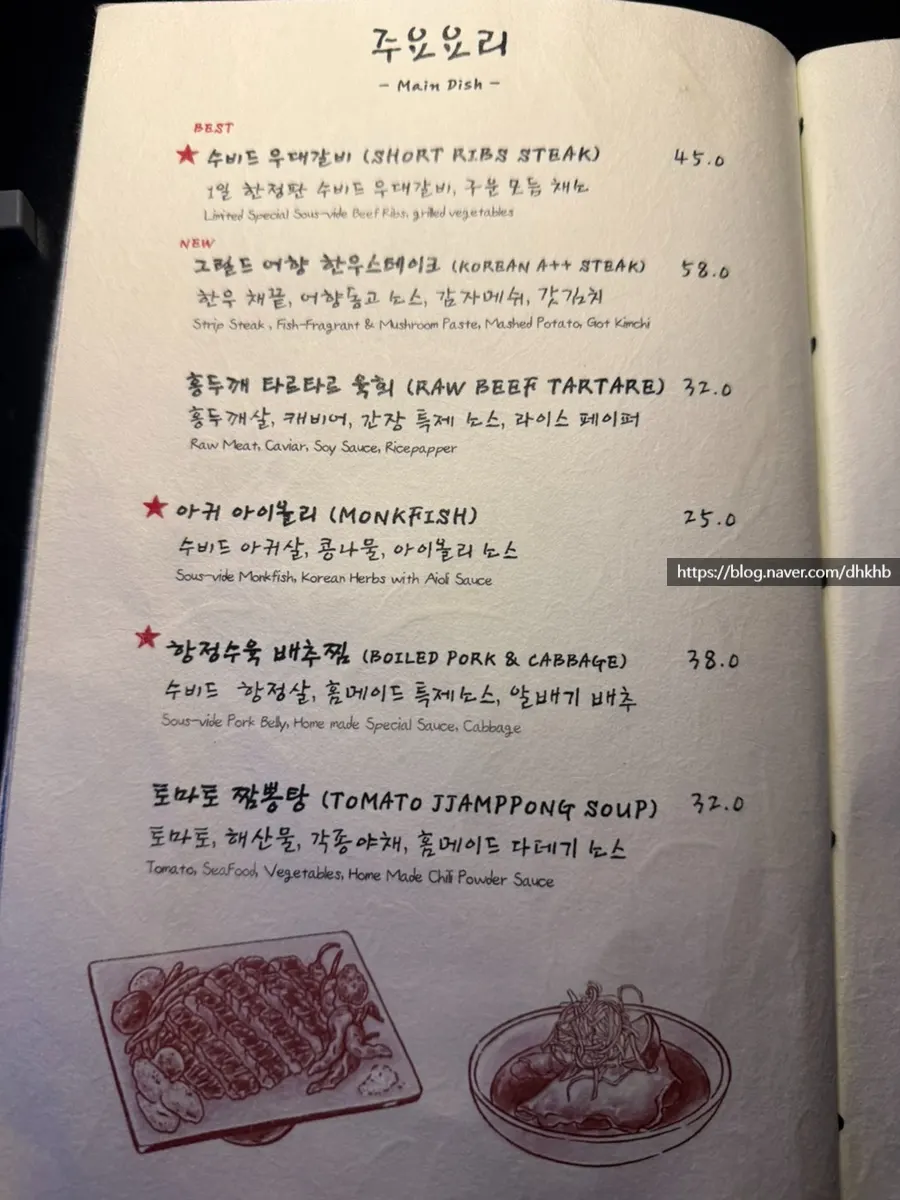 주요요리
- Main Dish -
BEST
★ 수비드 우대갈비 (SHORT RIBS STEAK) 45.0
1일 한정판 수비드 우대갈비, 구운 모듬 채소
Limited Special Sous-vide Beef Ribs, grilled vegetables
NEW
그릴드 어향 한우스테이크 (KOREAN A++ STEAK) 58.0
한우 채끝, 어향동고 소스, 감자메쉬, 갓김치
Strip Steak, Fish-Fragrant & Mushroom Paste, Mashed Potato, Got Kimchi
홍두깨 타르타르 육회 (RAW BEEF TARTARE) 32.0
홍두깨살, 캐비어, 간장 특제 소스, 라이스 페이퍼
Raw Meat, Caviar, Soy Sauce, Ricepapper
★ 아귀 아이올리 (MONKFISH) 25.0
수비드 아귀살, 콩나물, 아이올리 소스
Sous-vide Monkfish, Korean Herbs with Aioli Sauce
https://blog.naver.com/dhkhb
★ 항정수육 배추찜 (BOILED PORK & CABBAGE) 38.0
수비드 항정살, 홈메이드 특제소스, 알배기 배추
Sous-vide Pork Belly, Home made Special Sauce, Cabbage
토마토 짬뽕탕 (TOMATO JJAMPPONG SOUP) 32.0
토마토, 해산물, 각종야채, 홈메이드 다데기 소스
Tomato, SeaFood, Vegetables, Home Made Chili Powder Sauce